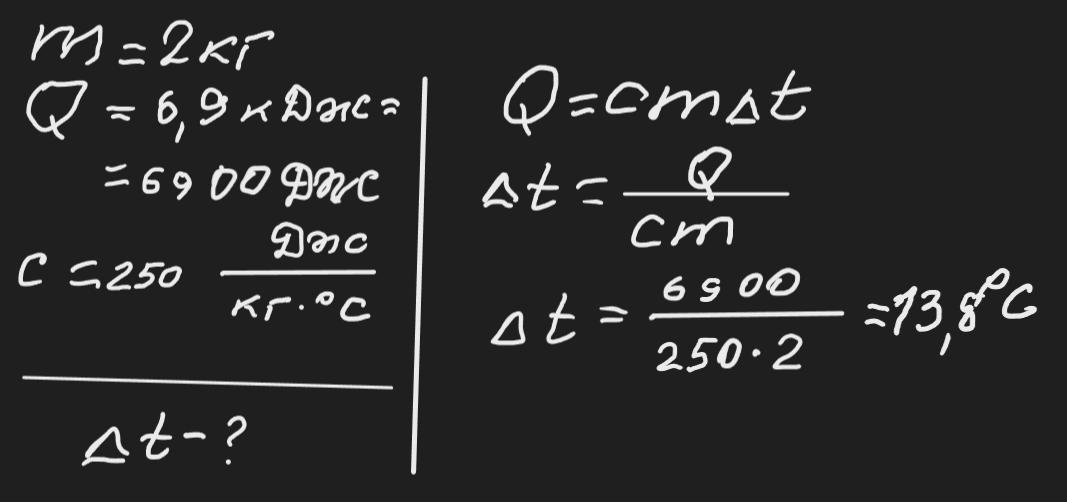 m = 2 кг
Q = 6,9 кДж =
= 6900 Дж
c = 250 Дж / кг · °C
Δt - ?
Q = cmΔt
Δt = Q / cm
Δt = 6900 / 250 · 2 = 13,8 °C